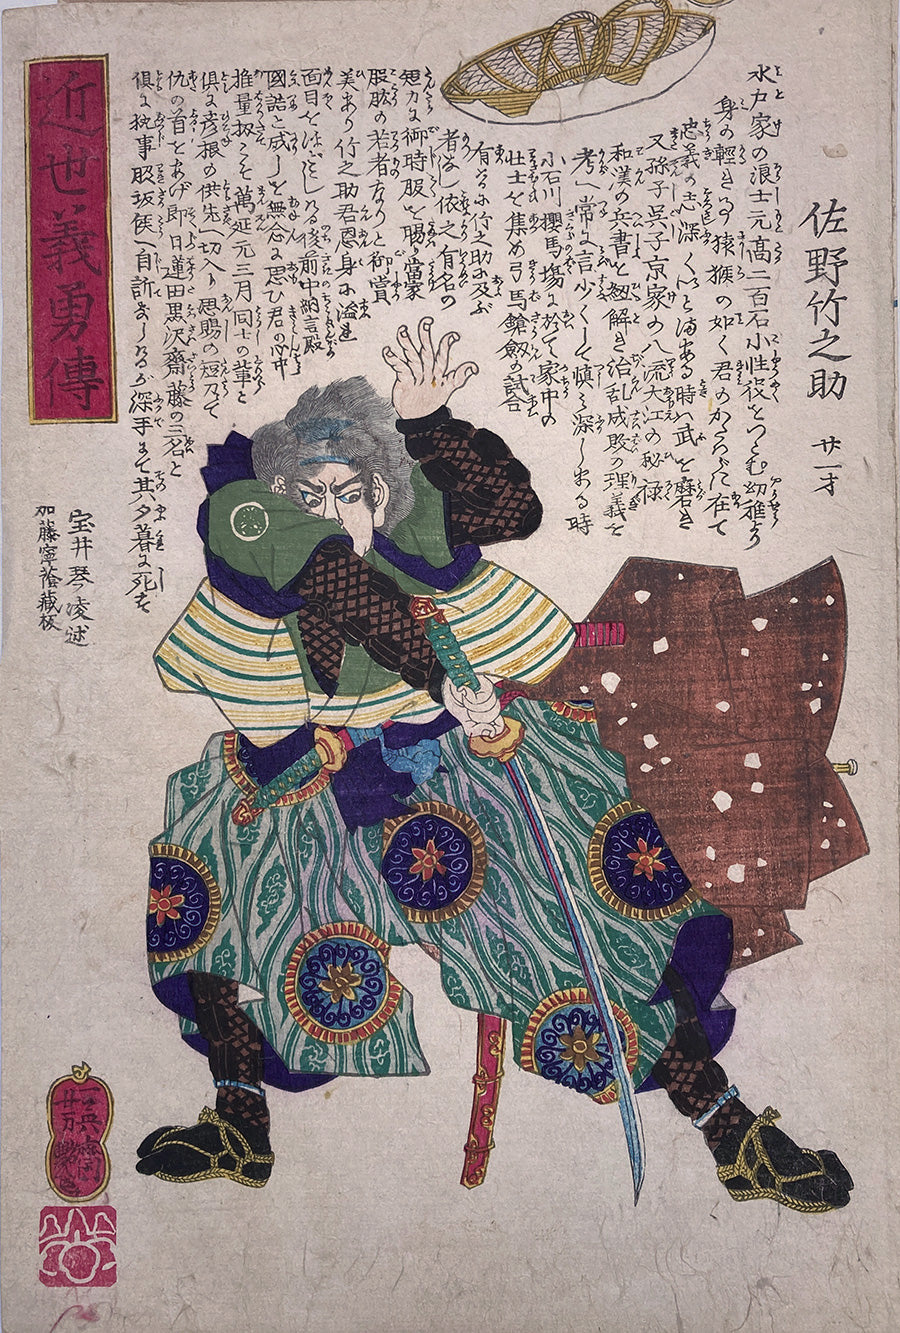 近世義勇傳
佐野竹之助 廿一才
水戸家の浪士元高二百石小性役をつとむ幼稚より
身の軽き事猿猴の如く君のかたはらに在て
忠義の志深くいとまある時ハ武を磨き
又孫子呉子京家の八流大江の秘禄
和漢の兵書を紐解き治乱成敗の理義を
考へ常に言少くして慎み深しある時
小石川櫻馬場に於て家中の
壮士を集め弓馬鎗劔の試合
有けるに竹之助に及ぶ
者なし依之有名の
短刀に御時服を賜當家
股肱の若者なりと御賞
美あり竹之助君恩身に溢連
面目をほどこしける後前中納言殿
國誥と成しを無念に思ひ君の心中
推量扨こそ萬延元三月同士の輩と
倶に彦根の供先へ切入り恩賜の短刀て
仇の首をあげ即日蓮田黒沢齋藤の三名と
倶に執事脇坂侯へ自訴ましけるが深手にて其夕暮に死を
宝井琴凌述
加藤寧 藏板
一英齋
芳艶画